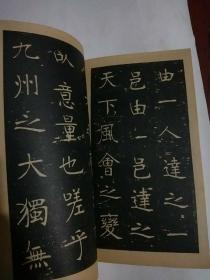 由一人達之一
邑由一邑達之
天下風會之變
以意量也嗟乎
九州之大獨無